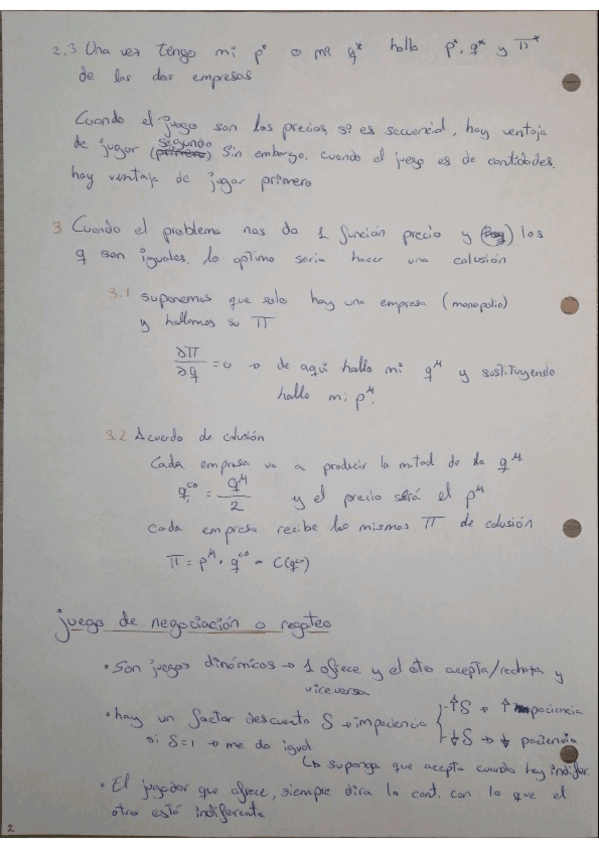 2.3 Una vez tengo mi p* o mi q* hallo p*, q* y Π*
de las dos empresas
Cuando el juego son los precios si es secuencial, hay ventaja
de jugar segundo (primero) Sin embargo, cuando el juego es de cantidades.
hay ventaja de jugar primero
3 Cuando el problema nos da 1 función precio y los
q son iguales. lo optimo seria hacer una colusión
3.1 suponemos que solo hay una empresa (monopolio)
y hallamos su Π
∂Π/∂q = 0 → de aqui hallo mi q^M y sustituyendo
hallo mi p^M.
3.2 Acuerdo de colusión
Cada empresa va a producir la mitad de la q^M
q_i^co = q^M/2 y el precio será el p^M
Cada empresa recibe los mismos Π de colusión
Π = p^M · q^co - C(q^co)
juego de negociación o regateo
• Son juegos dinámicos → 1 ofrece y el otro acepta/rechaza y
viceversa
• hay un factor descuento δ → impaciencia { - ↑δ → ↑ paciencia
si δ=1 → me da igual - ↓δ → ↓ paciencia
↳ suponga que acepta cuando hay indifer.
• El jugador que ofrece, siempre dira la cant. con la que el
otro está indiferente
2